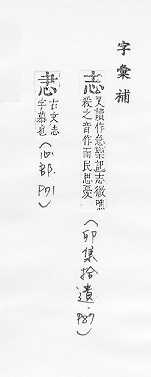 字彙補
志 又讀作急樂記志微噍
殺之音作而民思憂
(卯集拾遺.P87)
古文志
字慕也
(心部.P71)